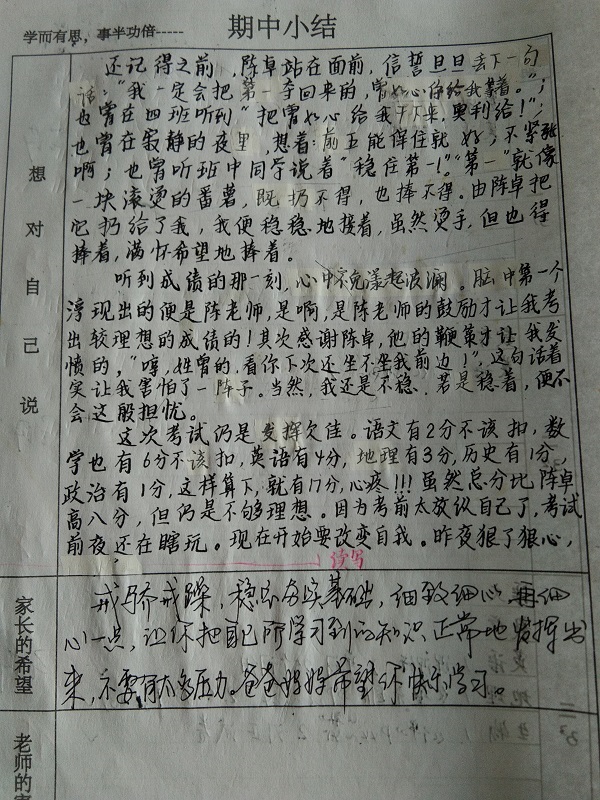 学而有思，事半功倍-----
期中小结
想对自己说
还记得之前，陈卓站在面前，信誓旦旦丢下一句
话："我一定会把第一夺回来的，曾如心你给我等着。"；
也曾在四班听到"把曾如心给我干下来，奥利给！"；
也曾在寂静的夜里，想着：前五能保住就好，不紧张
啊；也曾听班中同学说着"稳住第一！""第一"就像
一块滚烫的番薯，既扔不得，也捧不得。由陈卓把
它扔给了我，我便稳稳地接着，虽然烫手，但也得
捧着，满怀希望地捧着。
听到成绩的那一刻，心中不免漾起波澜。脑中第一个
浮现出的便是陈老师，是啊，是陈老师的鼓励才让我考
出较理想的成绩的！其次感谢陈卓，他的鞭策才让我发
愤的，"嘚，姓曾的，看你下次还坐不坐我前边！"，这句话着
实让我害怕了一阵子。当然，我还是不稳，若是稳着，便不
会这般担忧。
这次考试仍是发挥欠佳。语文有2分不该扣，数
学也有6分不该扣，英语有4分，地理有3分，历史有1分，
政治有1分，这样算下，就有17分，心疼！！！虽然总分比陈卓
高八分，但仍是不够理想。因为考前太放纵自己了，考试
前夜还在瞎玩。现在开始要改变自我。昨夜狠了狠心，
续写
家长的希望
戒骄戒躁，稳扎务实基础，细致细心，再细
心一点，让你把自己所学习到的知识正常地发挥出
来，不要有太多压力。爸爸妈妈希望你快乐学习。